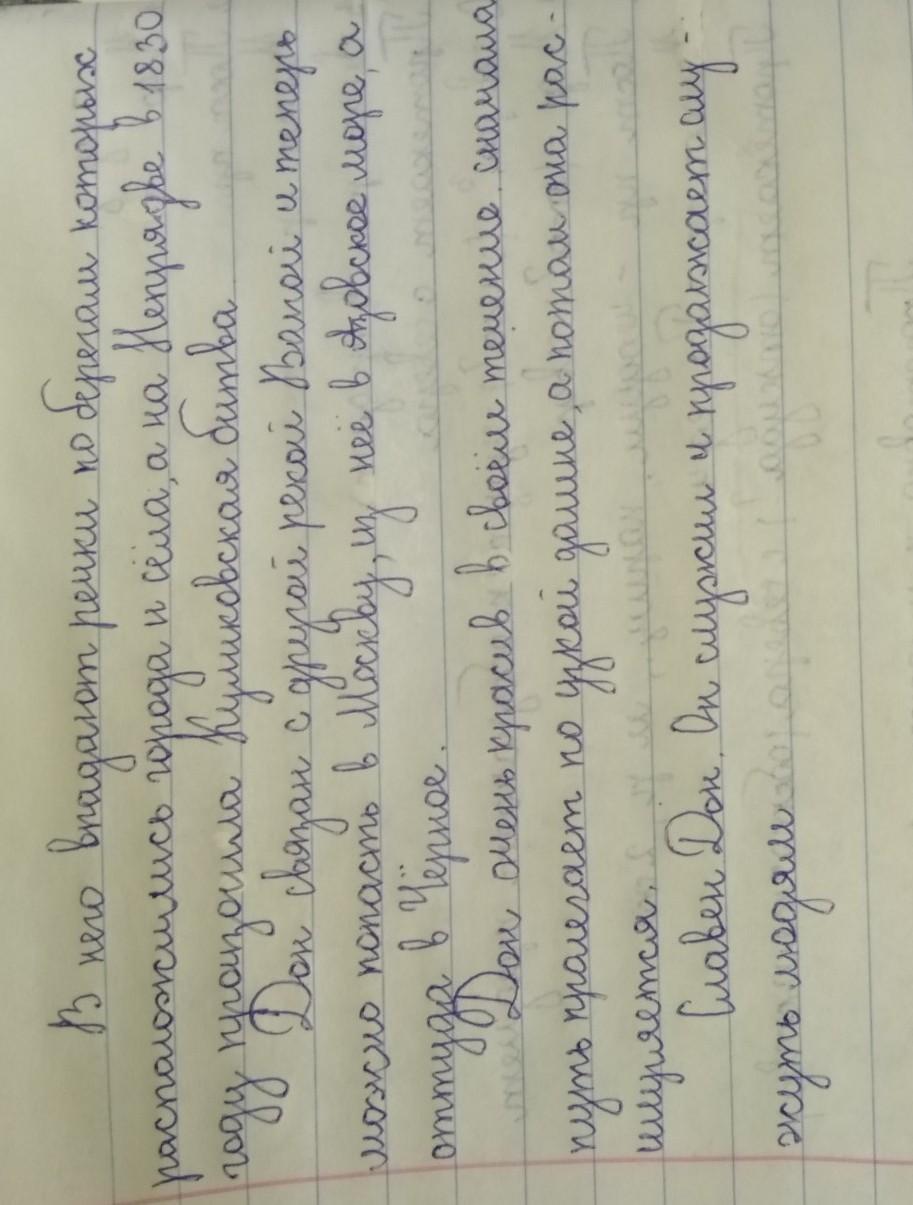 В него впадают речки по берегам которых
расположились города и сёла, а на Непрядве в 1830
году произошла Куликовская битва
Дон связан с другой рекой Волгой и теперь
можно попасть в Москву, из неё в Азовское море, а
оттуда в Чёрное.
Дон очень красив в своём течение сначала
путь пролегает по узкой долине, а потом она рас-
ширяется.
Славен Дон. Он служил и продолжает слу-
жить людям